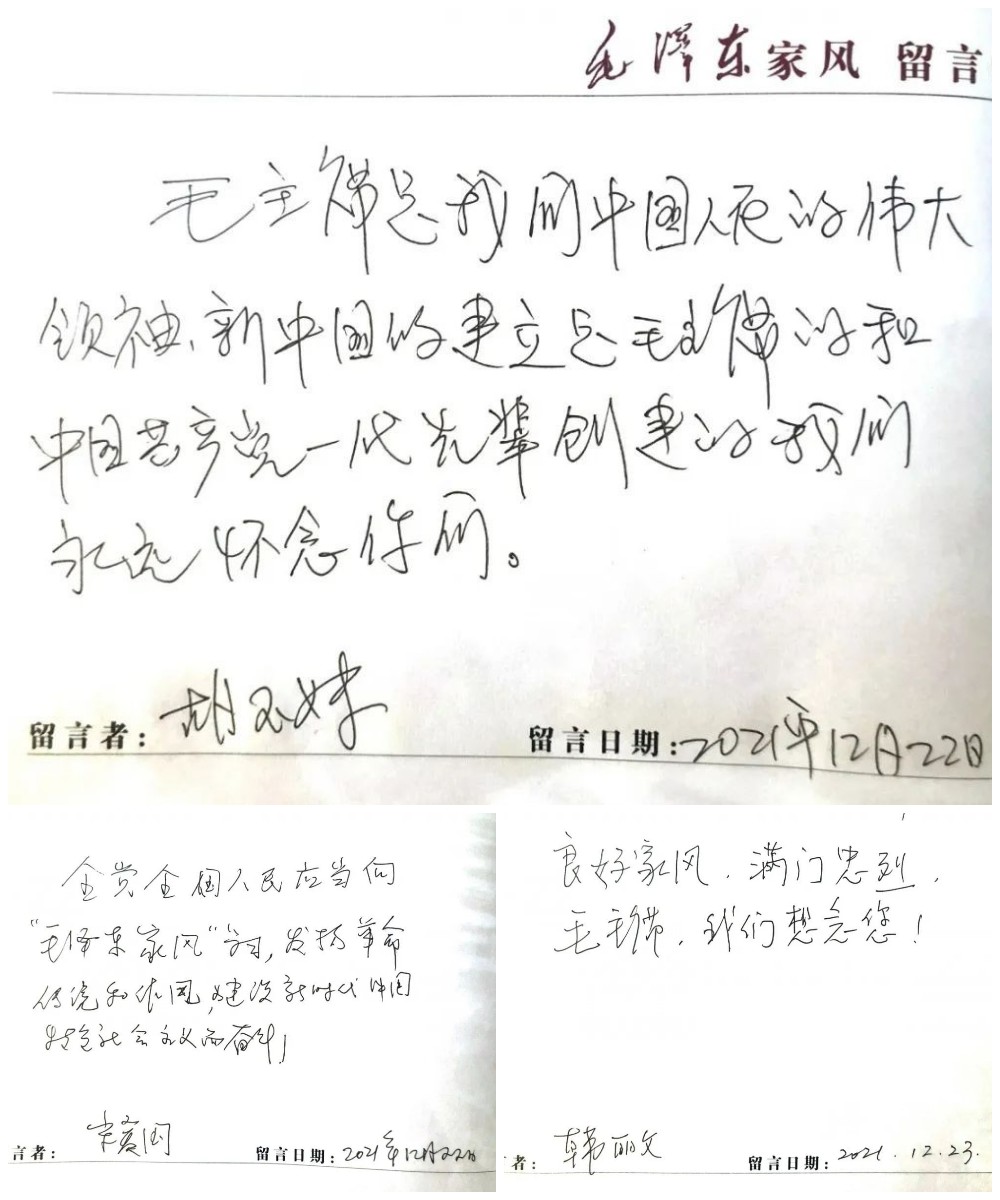 毛泽东家风 留言
毛主席是我们中国人民的伟大
领袖、新中国的建立是毛主席的和
中国共产党一代先辈创建的我们
永远怀念你们。
留言者: 胡玉妹
留言日期: 2021年12月22日
全党全国人民应当向
“毛泽东家风”学习, 发扬革命
传统和作风, 建设新时代中国
特色社会主义而奋斗!
言者: 宋爱国
留言日期: 2021年12月22日
良好家风, 满门忠烈,
毛主席, 我们想念您!
者: 韩丽文
留言日期: 2021.12.23.